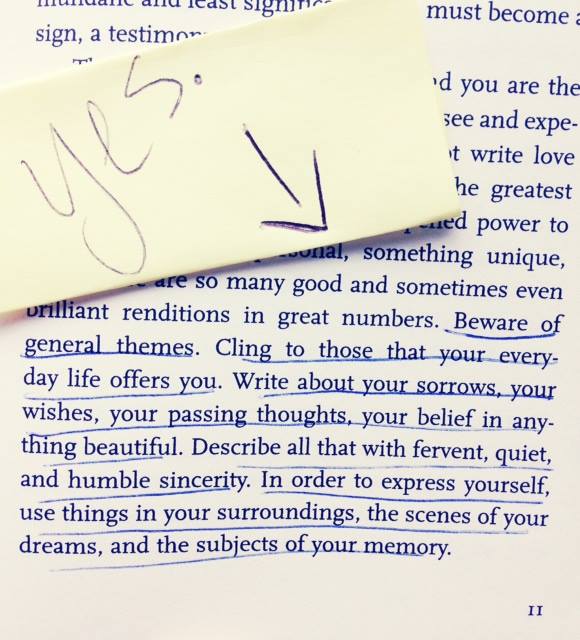 must become a
sign, a
d you are the
see and expe-
t write love
he greatest
Yes.
power to
something unique,
are so many good and sometimes even
brilliant renditions in great numbers. Beware of
general themes. Cling to those that your every-
day life offers you. Write about your sorrows, your
wishes, your passing thoughts, your belief in any-
thing beautiful. Describe all that with fervent, quiet,
and humble sincerity. In order to express yourself,
use things in your surroundings, the scenes of your
dreams, and the subjects of your memory.
11